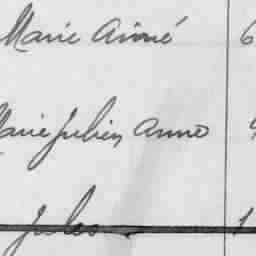 Marie Aimé 6
Marie Julien Anno
Jules 1